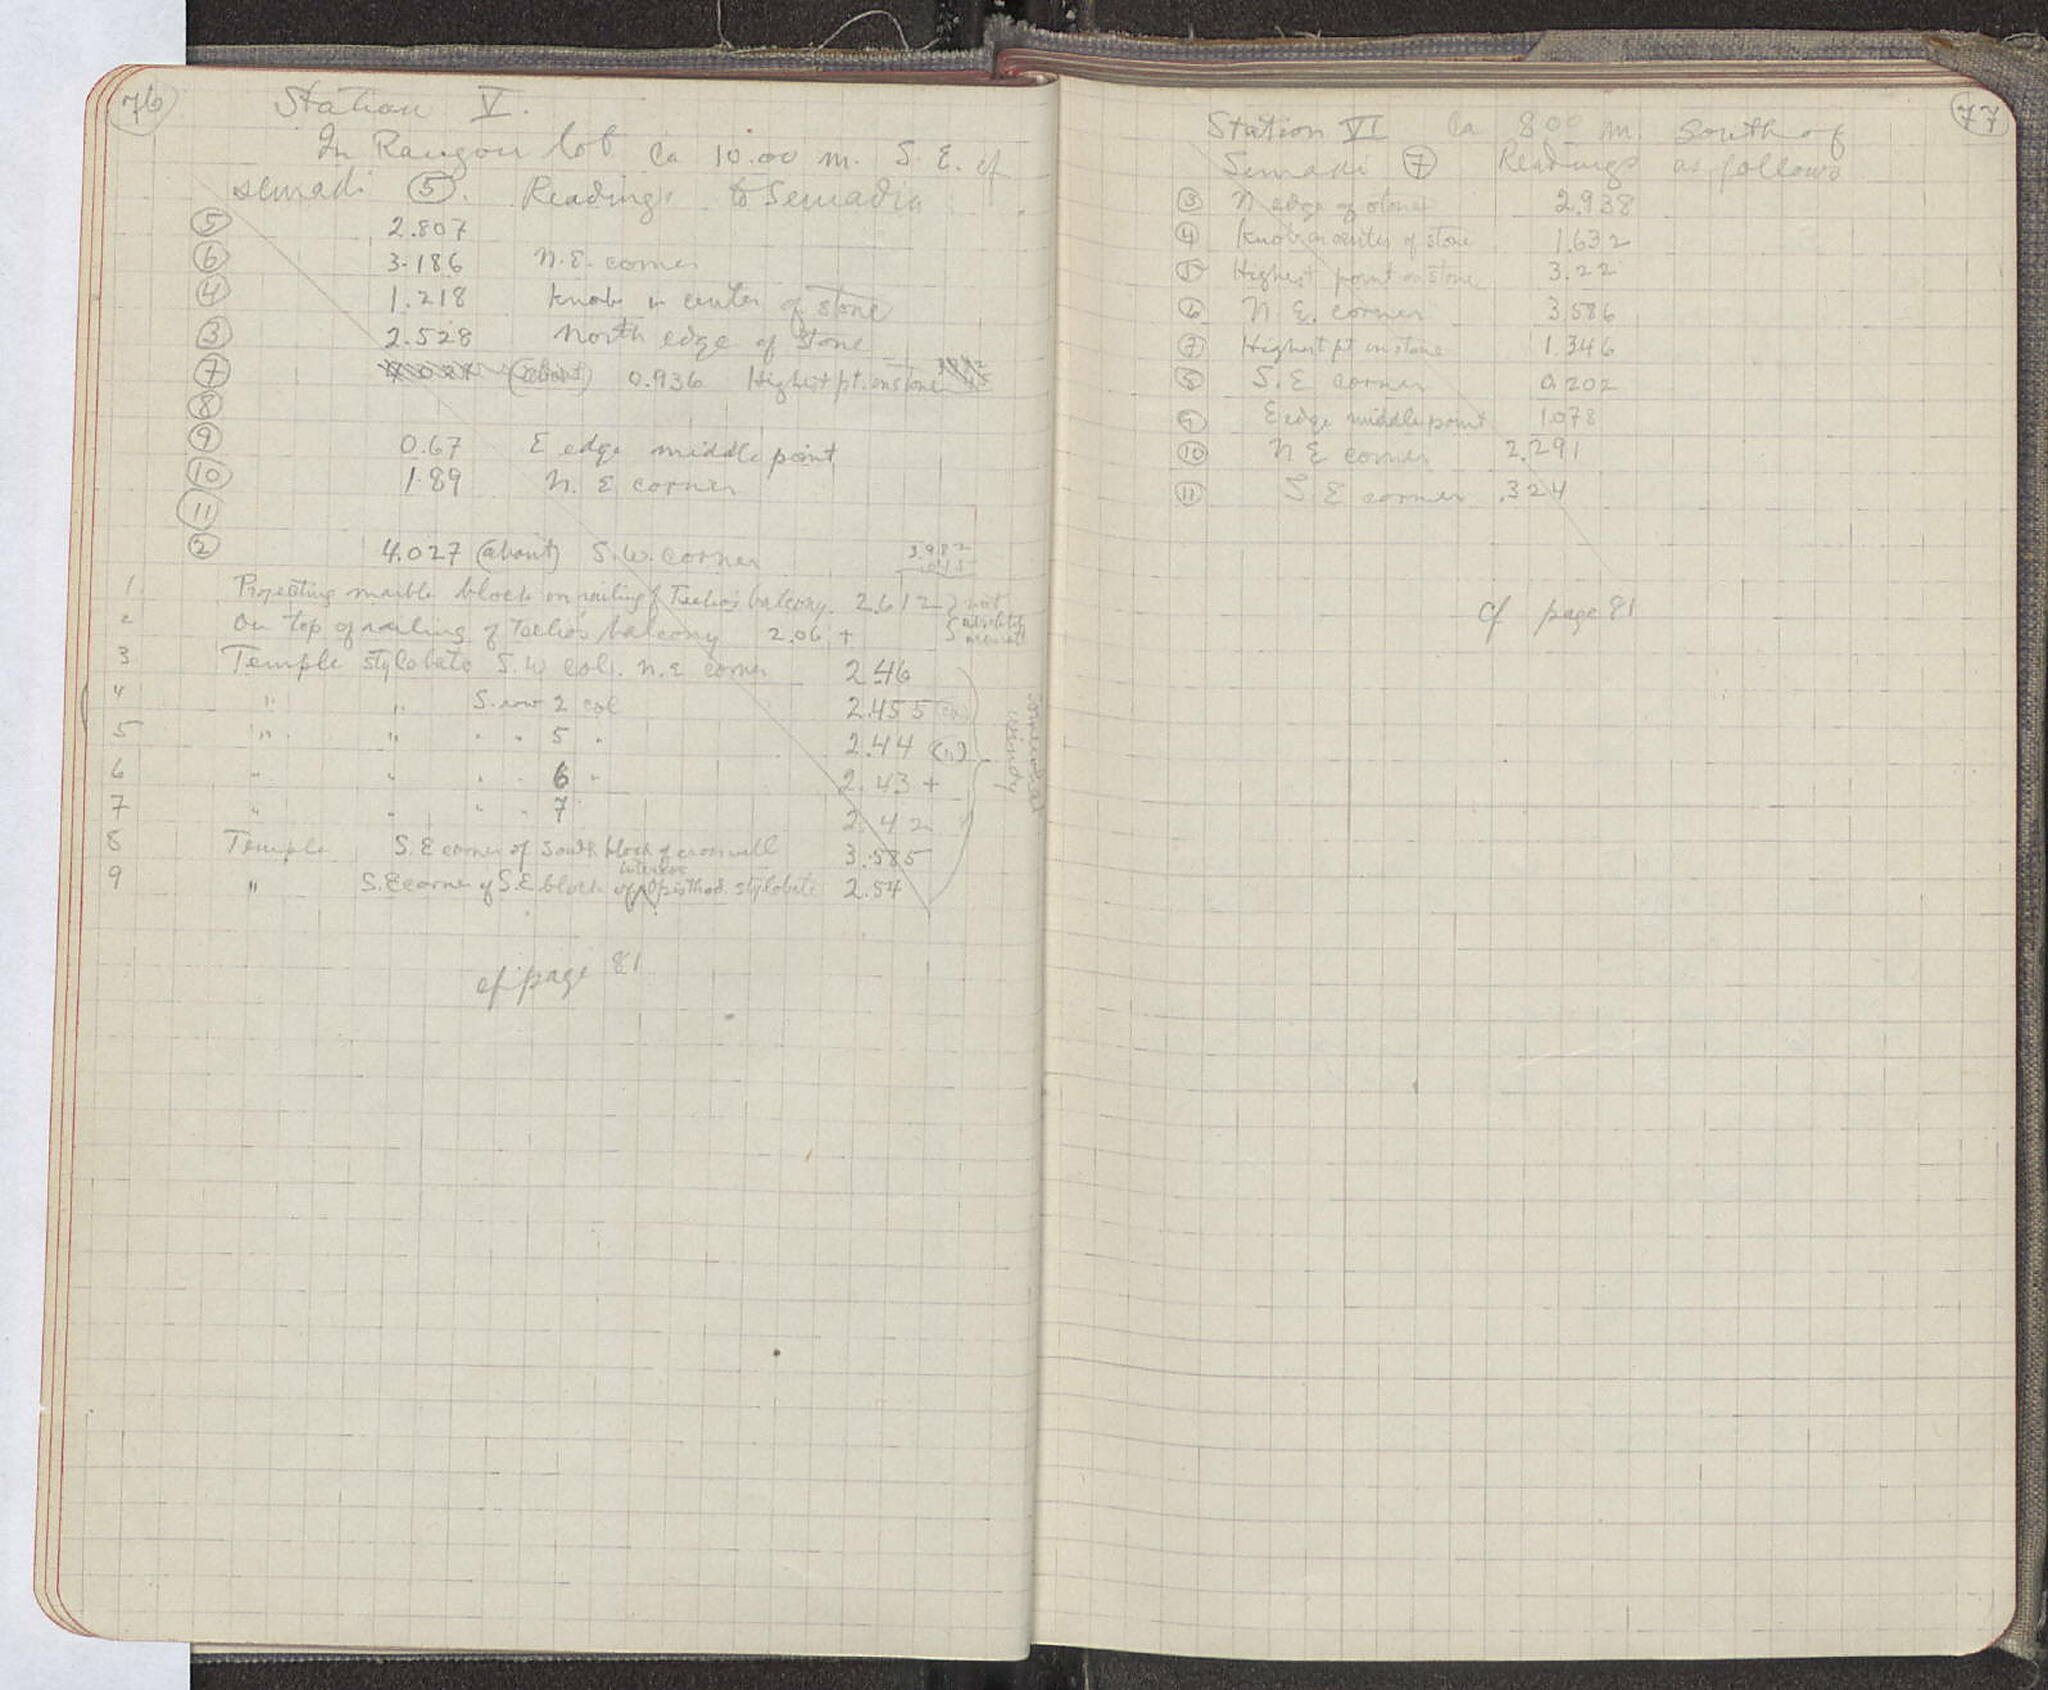 76
Station V.
In Rangou lot ca 10.00 m. S. E. of
semadi ⑤. Readings to Semadia
⑤ 2.807
⑥ 3.186 N.E. corner
④ 1.218 Knob in center of stone
③ 2.528 North edge of stone
⑦ (about) 0.936 Highest pt. on stone
⑧
⑨ 0.67 E edge middle point
⑩ 1.89 N. E corner
⑪
② 4.027 (about) S.W. corner 3.982
1. Projecting marble block on railing of balcony. 2.612 } not
2 On top of railing of balcony 2.06 + absolutely
3 Temple stylobate S.W col. N.E corner 2.46
4 " " S. row 2 col 2.455 (ca)
5 " " " " 5 " 2.44 (")
6 " " " " 6 " 2.43 +
7 " " " " 7 2.42 "
somewhat
windy
8 Temple S.E corner of South block of crosswall 3.585
9 " S.E corner of S.E block of interior Opisthod. stylobate 2.54
cf page 81
77
Station VI Ca 8.00 m. South of
Semadi ⑦ Readings as follows
③ N edge of stone 2.938
④ Knob on center of stone 1.632
⑤ Highest point on stone 3.22
⑥ N. E. corner 3.586
⑦ Highest pt. on stone 1.346
⑧ S. E corner 0.202
⑨ E edge middle point 1.078
⑩ N E corner 2.291
⑪ S. E corner .324
cf page 81